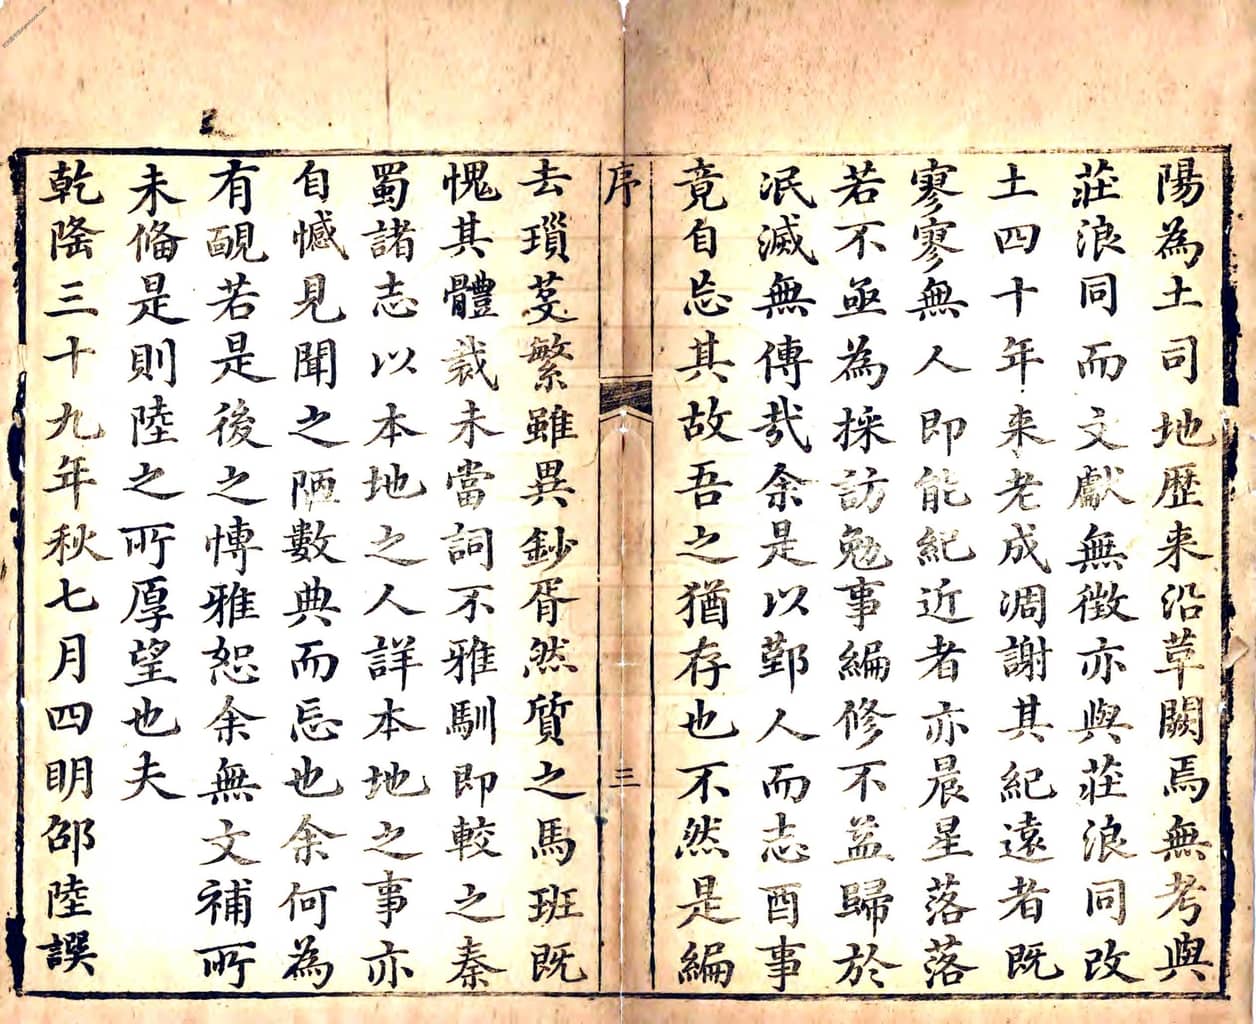 陽為土司地歷来沿革闕焉無考與
莊浪同而文獻無徵亦與莊浪同改
土四十年来老成凋謝其紀遠者既
寥寥無人即能紀近者亦晨星落落
若不亟為採訪勉事編修不益歸於
泯滅無傳哉余是以鄞人而志酉事
竟自忘其故吾之猶存也不然是編
序
三
去瑣芟繁雖異鈔胥然質之馬班既
愧其體裁未當詞不雅馴即較之秦
蜀諸志以本地之人詳本地之事亦
自憾見聞之陋數典而忘也余何為
有靦若是後之博雅恕余無文補所
未備是則陸之所厚望也夫
乾隆三十九年秋七月四明邵陸譔